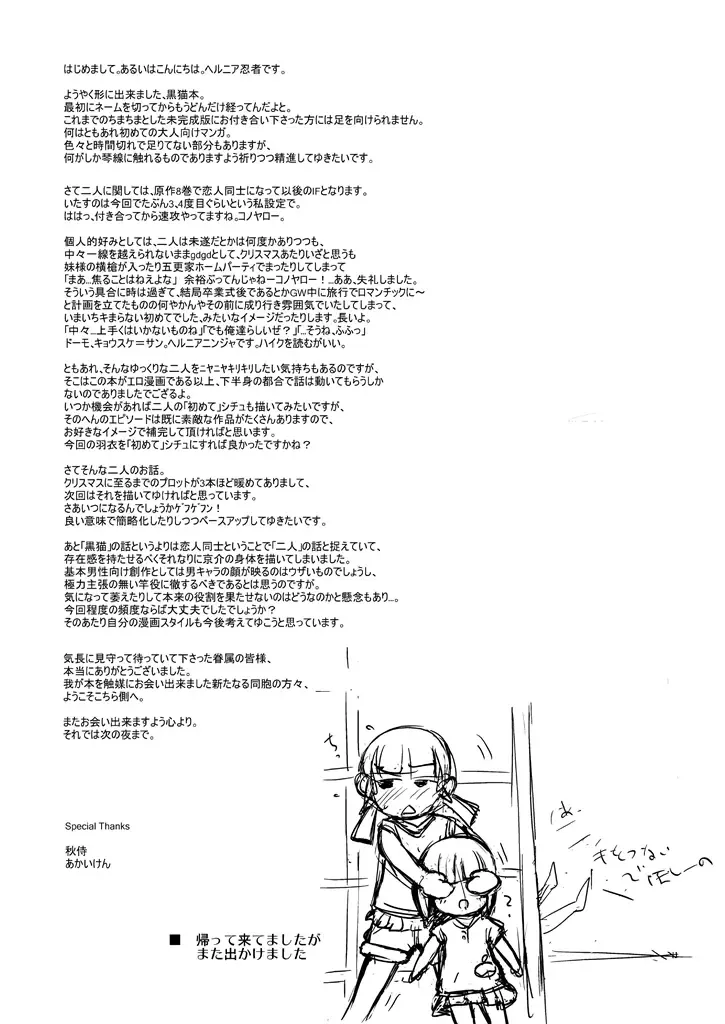 はじめまして。あるいはこんにちは。ヘルニア忍者です。
ようやく形に出来ました、黒猫本。
最初にネームを切ってからもうどんだけ経ってんだよと。
これまでのちまちまとした未完成版にお付き合い下さった方には足を向けられません。
何はともあれ初めての大人向けマンガ。
色々と時間切れで足りてない部分もありますが、
何がしか琴線に触れるものでありますよう祈りつつ精進してゆきたいです。
さて二人に関しては、原作8巻で恋人同士になって以後のIFとなります。
いたすのは今回でたぶん3、4度目ぐらいという私設定で。
ははっ、付き合ってから速攻やってますね。コノヤロー。
個人的好みとしては、二人は未遂だとかは何度かありつつも、
中々一線を越えられないままgdgdとして、クリスマスあたりいざと思うも
妹様の横槍が入ったり五更家ホームパーティでまったりしてしまって
「まあ…焦ることはねえよな」 余裕ぶってんじゃねーコノヤロー！…ああ、失礼しました。
そういう具合に時は過ぎて、結局卒業式後であるとかGW中に旅行でロマンチックに～
と計画を立てたものの何やかんやその前に成り行き雰囲気でいたしてしまって、
いまいちキまらない初めてでした、みたいなイメージだったりします。長いよ。
「中々…上手くはいかないものね」「でも俺達らしいぜ？」「…そうね、ふふっ」
ドーモ、キョウスケ＝サン。ヘルニアニンジャです。ハイクを読むがいい。
ともあれ、そんなゆっくりな二人をﾆﾔﾆﾔｷﾘｷﾘしたい気持ちもあるのですが、
そこはこの本がエロ漫画である以上、下半身の都合で話は動いてもらうしか
ないのでありましたでござるよ。
いつか機会があれば二人の「初めて」シチュも描いてみたいですが、
そのへんのエピソードは既に素敵な作品がたくさんありますので、
お好きなイメージで補完して頂ければと思います。
今回の羽衣を「初めて」シチュにすれば良かったですかね？
さてそんな二人のお話。
クリスマスに至るまでのプロットが3本ほど暖めてありまして、
次回はそれを描いてゆければと思っています。
さあいつになるんでしょうかｹﾞﾌｹﾞﾌﾝ！
良い意味で簡略化したりしつつペースアップしてゆきたいです。
あと「黒猫」の話というよりは恋人同士ということで「二人」の話と捉えていて、
存在感を持たせるべくそれなりに京介の身体を描いてしまいました。
基本男性向け創作としては男キャラの顔が映るのはウザいものでしょうし、
極力主張の無い竿役に徹するべきであるとは思うのですが。
気になって萎えたりして本来の役割を果たせないのはどうなのかと懸念もあり…。
今回程度の頻度ならば大丈夫でしたでしょうか？
そのあたり自分の漫画スタイルも今後考えてゆこうと思っています。
気長に見守って待っていて下さった眷属の皆様、
本当にありがとうございました。
我が本を触媒にお会い出来ました新たなる同胞の方々、
ようこそこちら側へ。
またお会い出来ますよう心より。
それでは次の夜まで。
ちっ
あ、
きせつない
でほしーの
?
Special Thanks
秋侍
あかいけん
■ 帰って来てましたが
また出かけました